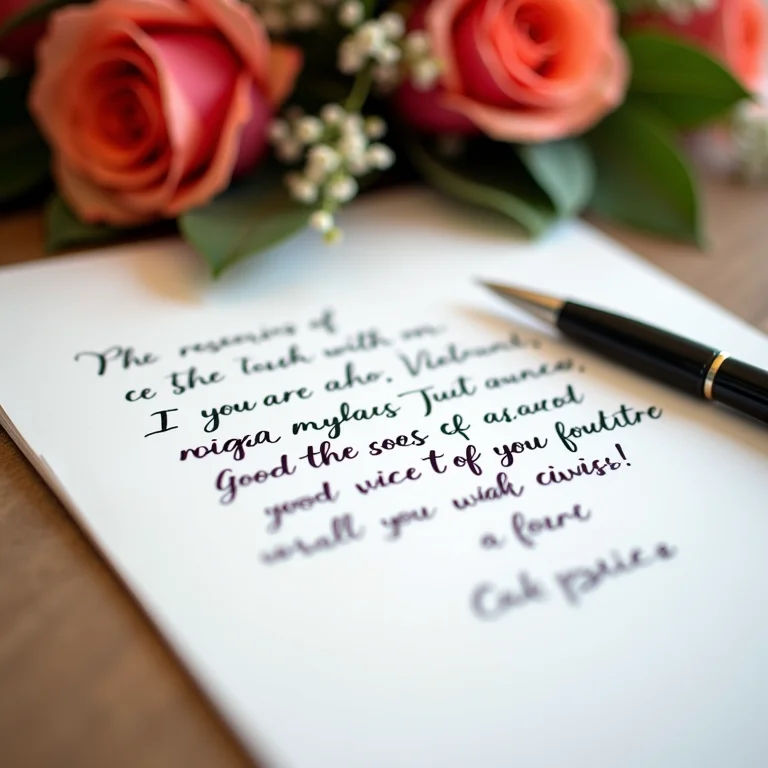 The resories of
ce The Touch with on
I you are aho. Vielound,
noigra mylacs Just aunce,
Good the soes of as.aucd
good vice t of you foutitre
worall you wiah civiss!
a fore
Cak psrice